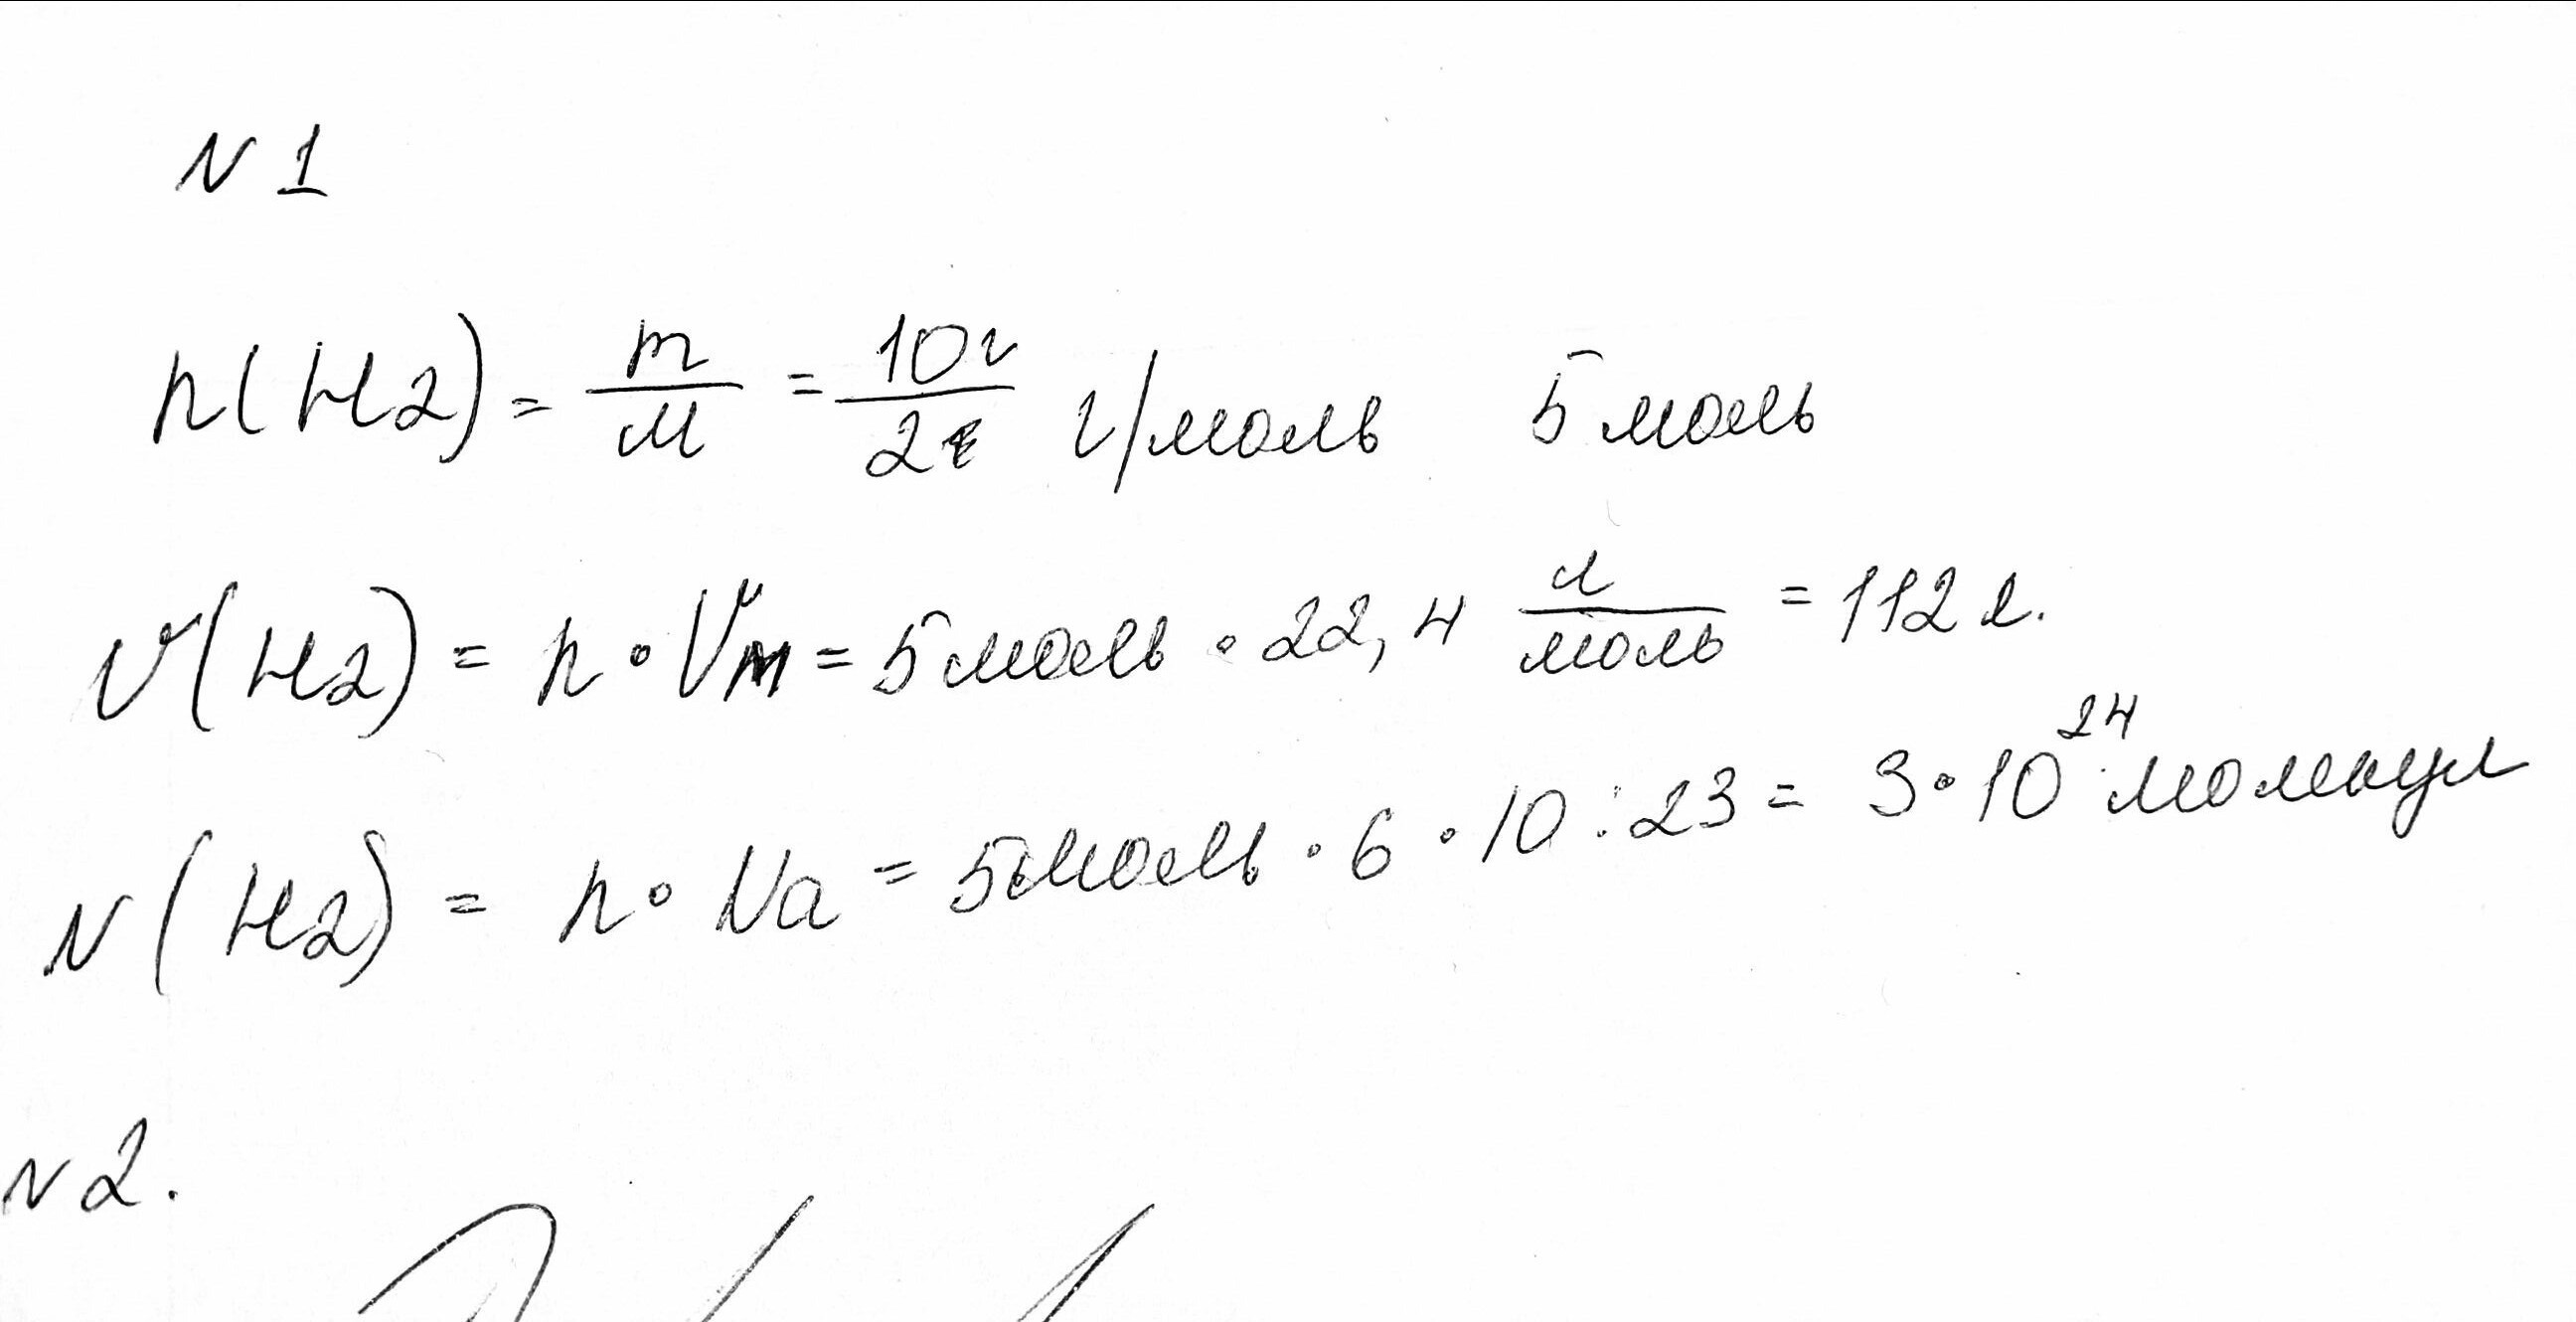 N 1
n(H2) = m/M = 10г/2г г/моль 5 моль
V(H2) = n • Vm = 5 моль • 22,4 л/моль = 112 л.
N(H2) = n • Na = 5 моль • 6 • 10 : 23 = 3 • 10^24 молекул
N 2.